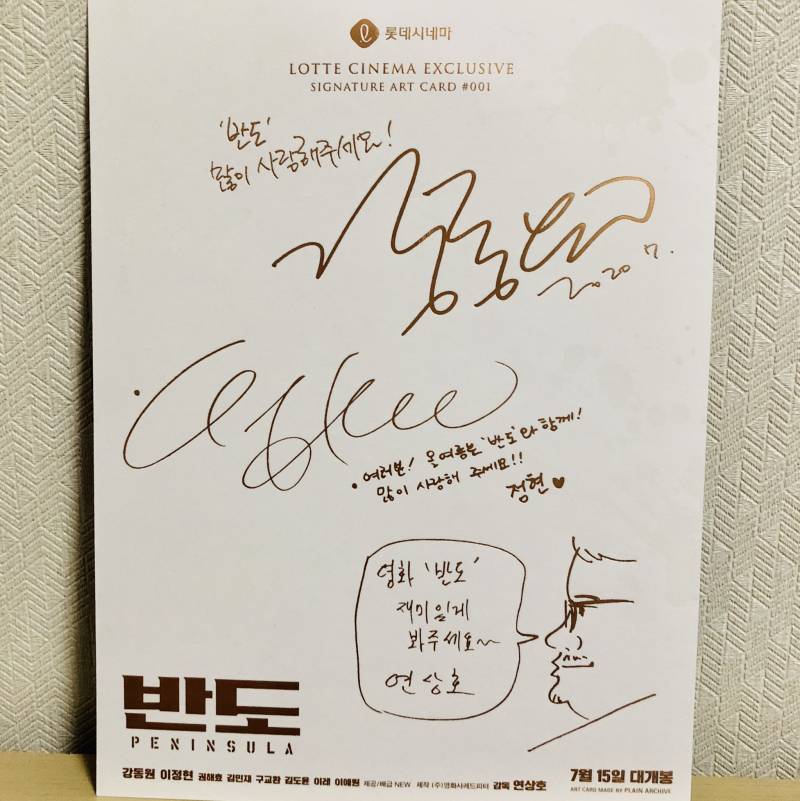 롯데시네마
LOTTE CINEMA EXCLUSIVE
SIGNATURE ART CARD #001
'반도'
많이 사랑해주세요!
2020 7.
여러분! 올여름은 '반도'와 함께!
많이 사랑해 주세요!!
정현♥
영화 '반도'
재미있게
봐주세요~
연상호
반도
PENINSULA
강동원 이정현 권해효 김민재 구교환 김도윤 이레 이예원 제공/배급 NEW 제작 (주)영화사레드피터 감독 연상호
7월 15일 대개봉
ART CARD MADE BY PLAIN ARCHIVE